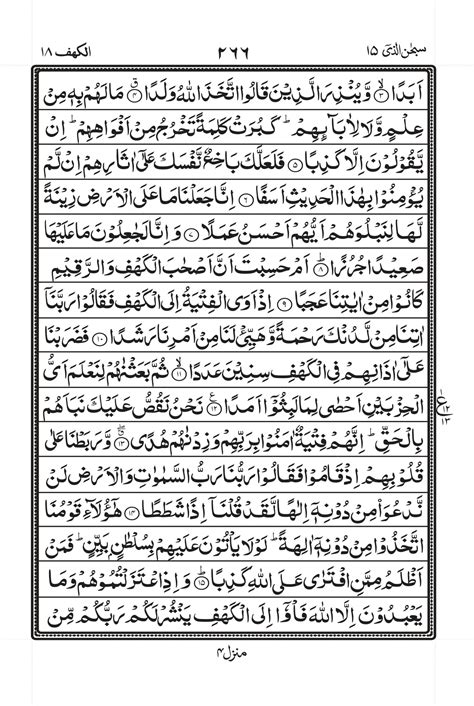 سبحٰن الذی ۱۵ ۲۶۶ الکهف ۱۸
اَبَدًا ۙ﴿۳﴾ وَّ یُنْذِرَ الَّذِیْنَ قَالُوا اتَّخَذَ اللّٰهُ وَلَدًا ۗ﴿۴﴾ مَا لَهُمْ بِهٖ مِنْ
عِلْمٍ وَّ لَا لِاٰبَآىِٕهِمْ ؕ كَبُرَتْ كَلِمَةً تَخْرُجُ مِنْ اَفْوَاهِهِمْ ؕ اِنْ
یَّقُوْلُوْنَ اِلَّا كَذِبًا ﴿۵﴾ فَلَعَلَّكَ بَاخِعٌ نَّفْسَكَ عَلٰۤی اٰثَارِهِمْ اِنْ لَّمْ
یُؤْمِنُوْا بِهٰذَا الْحَدِیْثِ اَسَفًا ﴿۶﴾ اِنَّا جَعَلْنَا مَا عَلَی الْاَرْضِ زِیْنَةً
لَّهَا لِنَبْلُوَهُمْ اَیُّهُمْ اَحْسَنُ عَمَلًا ﴿۷﴾ وَ اِنَّا لَجٰعِلُوْنَ مَا عَلَیْهَا
صَعِیْدًا جُرُزًا ؕ﴿۸﴾ اَمْ حَسِبْتَ اَنَّ اَصْحٰبَ الْكَهْفِ وَ الرَّقِیْمِ
كَانُوْا مِنْ اٰیٰتِنَا عَجَبًا ﴿۹﴾ اِذْ اَوَی الْفِتْیَةُ اِلَی الْكَهْفِ فَقَالُوْا رَبَّنَاۤ
اٰتِنَا مِنْ لَّدُنْكَ رَحْمَةً وَّ هَیِّئْ لَنَا مِنْ اَمْرِنَا رَشَدًا ﴿۱۰﴾ فَضَرَبْنَا
عَلٰۤی اٰذَانِهِمْ فِی الْكَهْفِ سِنِیْنَ عَدَدًا ۙ﴿۱۱﴾ ثُمَّ بَعَثْنٰهُمْ لِنَعْلَمَ اَیُّ
الْحِزْبَیْنِ اَحْصٰی لِمَا لَبِثُوْۤا اَمَدًا ﴿۱۲﴾ نَحْنُ نَقُصُّ عَلَیْكَ نَبَاَهُمْ
ع ۱ ۱۲ ۱۳
بِالْحَقِّ ؕ اِنَّهُمْ فِتْیَةٌ اٰمَنُوْا بِرَبِّهِمْ وَ زِدْنٰهُمْ هُدًی ۖ﴿۱۳﴾ وَّ رَبَطْنَا عَلٰی
قُلُوْبِهِمْ اِذْ قَامُوْا فَقَالُوْا رَبُّنَا رَبُّ السَّمٰوٰتِ وَ الْاَرْضِ لَنْ
نَّدْعُوَا۠ مِنْ دُوْنِهٖۤ اِلٰهًا لَّقَدْ قُلْنَاۤ اِذًا شَطَطًا ﴿۱۴﴾ هٰۤؤُلَآءِ قَوْمُنَا
اتَّخَذُوْا مِنْ دُوْنِهٖۤ اٰلِهَةً ؕ لَوْ لَا یَاْتُوْنَ عَلَیْهِمْ بِسُلْطٰنٍۭ بَیِّنٍ ؕ فَمَنْ
اَظْلَمُ مِمَّنِ افْتَرٰی عَلَی اللّٰهِ كَذِبًا ؕ﴿۱۵﴾ وَ اِذِ اعْتَزَلْتُمُوْهُمْ وَ مَا
یَعْبُدُوْنَ اِلَّا اللّٰهَ فَاْوٗۤا اِلَی الْكَهْفِ یَنْشُرْ لَكُمْ رَبُّكُمْ مِّنْ
منزل ۴